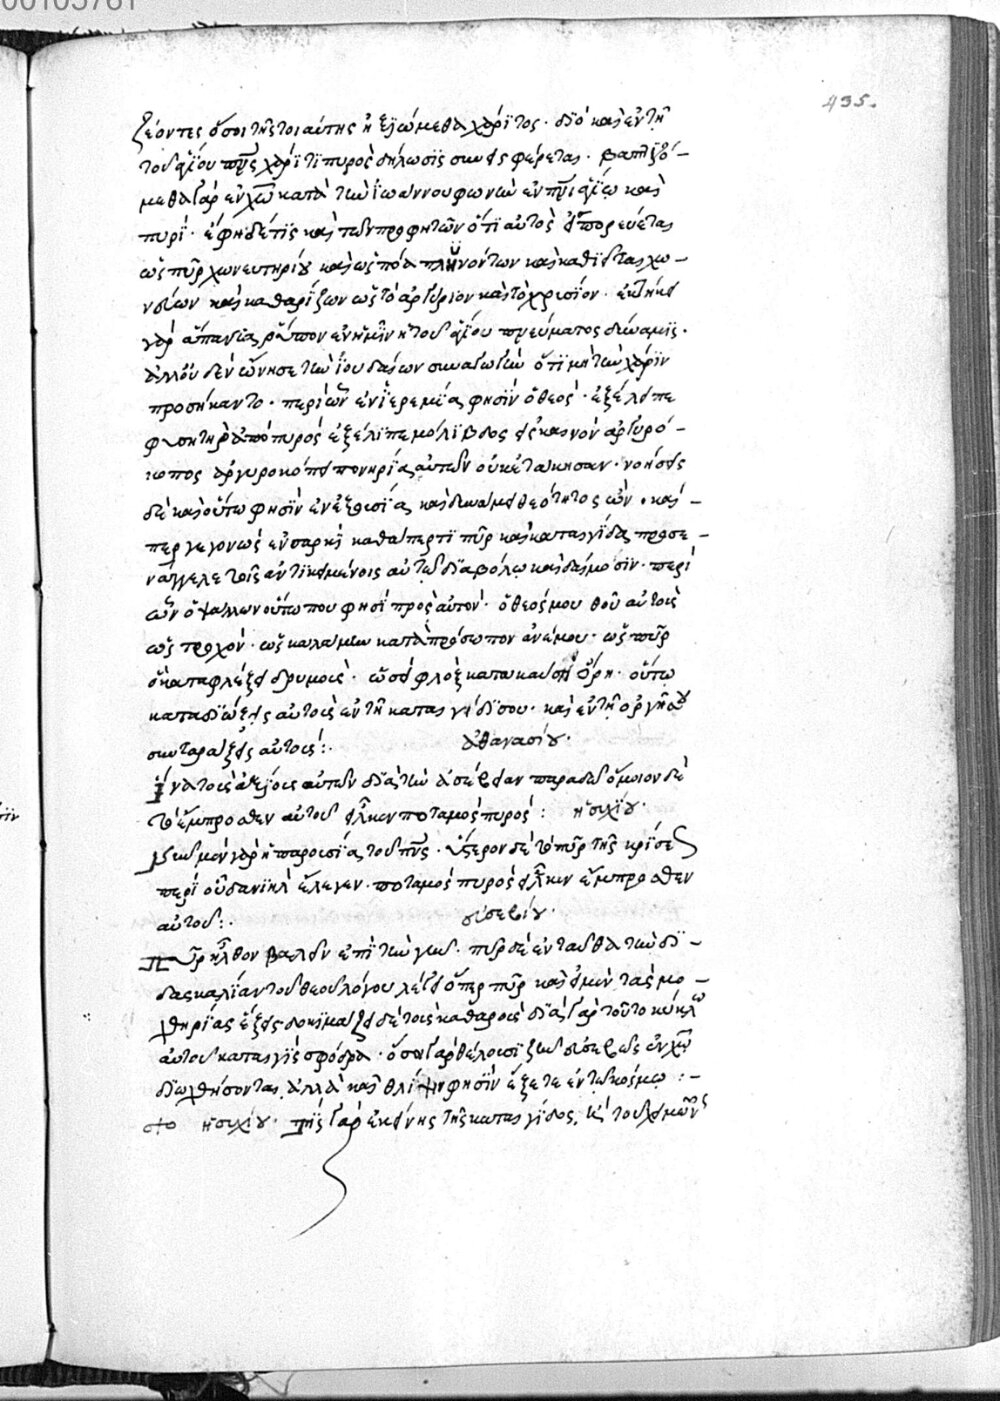 00105761
435.
ζέοντες ὅσοι τῆς τοιαύτης ἠξιώμεθα χάριτος. διὸ καὶ ἐν τῇ
τοῦ ἁγίου πνς χάριτι πυρὸς δήλωσις φέρεται. βαπτιζό-
μεθα γὰρ ἐν χῶ κατὰ τὴν ἰωάννου φωνὴν ἐν πνι ἁγίω καὶ
πυρί. ἔφη δέ τις καὶ τῶν προφητῶν ὅτι αὐτὸς εἰσπορεύεται
ὡς πῦρ χωνευτηρίου καὶ ὡς πόα πλυνόντων καὶ καθιεῖται χω-
νεύων καὶ καθαρίζων ὡς τὸ ἀργύριον καὶ τὸ χρυσίον. ἐκτήκει
γὰρ ἅπαντα ῥύπον ἐν ἡμῖν ἡ τοῦ ἁγίου πνεύματος δύναμις.
ἀλλ' οὐδὲν ὤνησε τὴν ἰουδαίων συναγωγὴν ὅτι μὴ τὴν χάριν
προσήκαντο. περὶ ὧν ἐν ἱερεμία φησὶν ὁ θεός. ἐξέλειπε
φυσητὴρ ἀπὸ πυρὸς ἐξέλιπε μόλιβδος εἰς κενὸν ἀργυρό-
κοπος ἀργυροκοπεῖ πονηρία αὐτῶν οὐκ ἐτάκησαν. νοήσεις
δὲ καὶ οὕτω φησὶν ἐν ἐξουσία καὶ δυνάμει θεότητος ὢν. καί-
περ γεγονὼς ἐν σαρκὶ καθάπερ τι πῦρ καὶ καταιγίδα προσε-
νάγγελε τοῖς ἀντικειμένοις αὐτῶ διαβόλω καὶ δαίμοσιν. περὶ
ὧν ὁ ψάλλων οὕτω που φησὶ πρὸς αὐτόν. ὁ θεός μου θοῦ αὐτοὺς
ὡς τροχόν. ὡς καλάμην κατὰ πρόσωπον ἀνέμου. ὡς πῦρ
ὃ καταφλέξει δρυμούς. ὡσεὶ φλὸξ κατακαύσει ὄρη. οὕτω
καταδιώξεις αὐτοὺς ἐν τῇ καταιγίδι σου. καὶ ἐν τῇ ὀργῇ σου
συνταράξεις αὐτούς:. ἀθανασίου.
ἵνα τοὺς ἀξίους αὐτῶν διὰ τὴν ἀσέβειαν παραδῶ ὅμοιον δὲ
τὸ ἔμπροσθεν αὐτοῦ εἷλκεν ποταμὸς πυρός: ἡσυχίου.
νῦν μὲν γὰρ ἡ παρουσία τοῦ πνς. ὕστερον δὲ τὸ πῦρ τῆς κρίσεως
περὶ οὗ δανιὴλ ἔλεγεν. ποταμὸς πυρὸς εἷλκεν ἔμπροσθεν
αὐτοῦ:. εὐσεβίου.
πῦρ ἦλθον βαλεῖν ἐπὶ τὴν γῆν. πῦρ δὲ ἐνταῦθα τὴν δι-
δασκαλίαν τοῦ θεοῦ λόγου λέγει ὅπερ πῦρ καὶ μὲν τὰς μο-
χθηρίας ἕξεις δοκιμάζει δὲ τοὺς καθαροὺς διὰ γὰρ τοῦτο κύκλω
αὐτοῦ καταιγὶς σφόδρα. ὅσοι γὰρ θέλουσι ζῆν εὐσεβῶς ἐν χῶ
διωχθήσονται ἀλλὰ καὶ θλίψιν φησὶν ἕξετε ἐν τῶ κόσμω:-
ἡσυχίου. τῆς γὰρ ἐκείνης τῆς καταιγίδος, καὶ τοῦ χειμῶνος